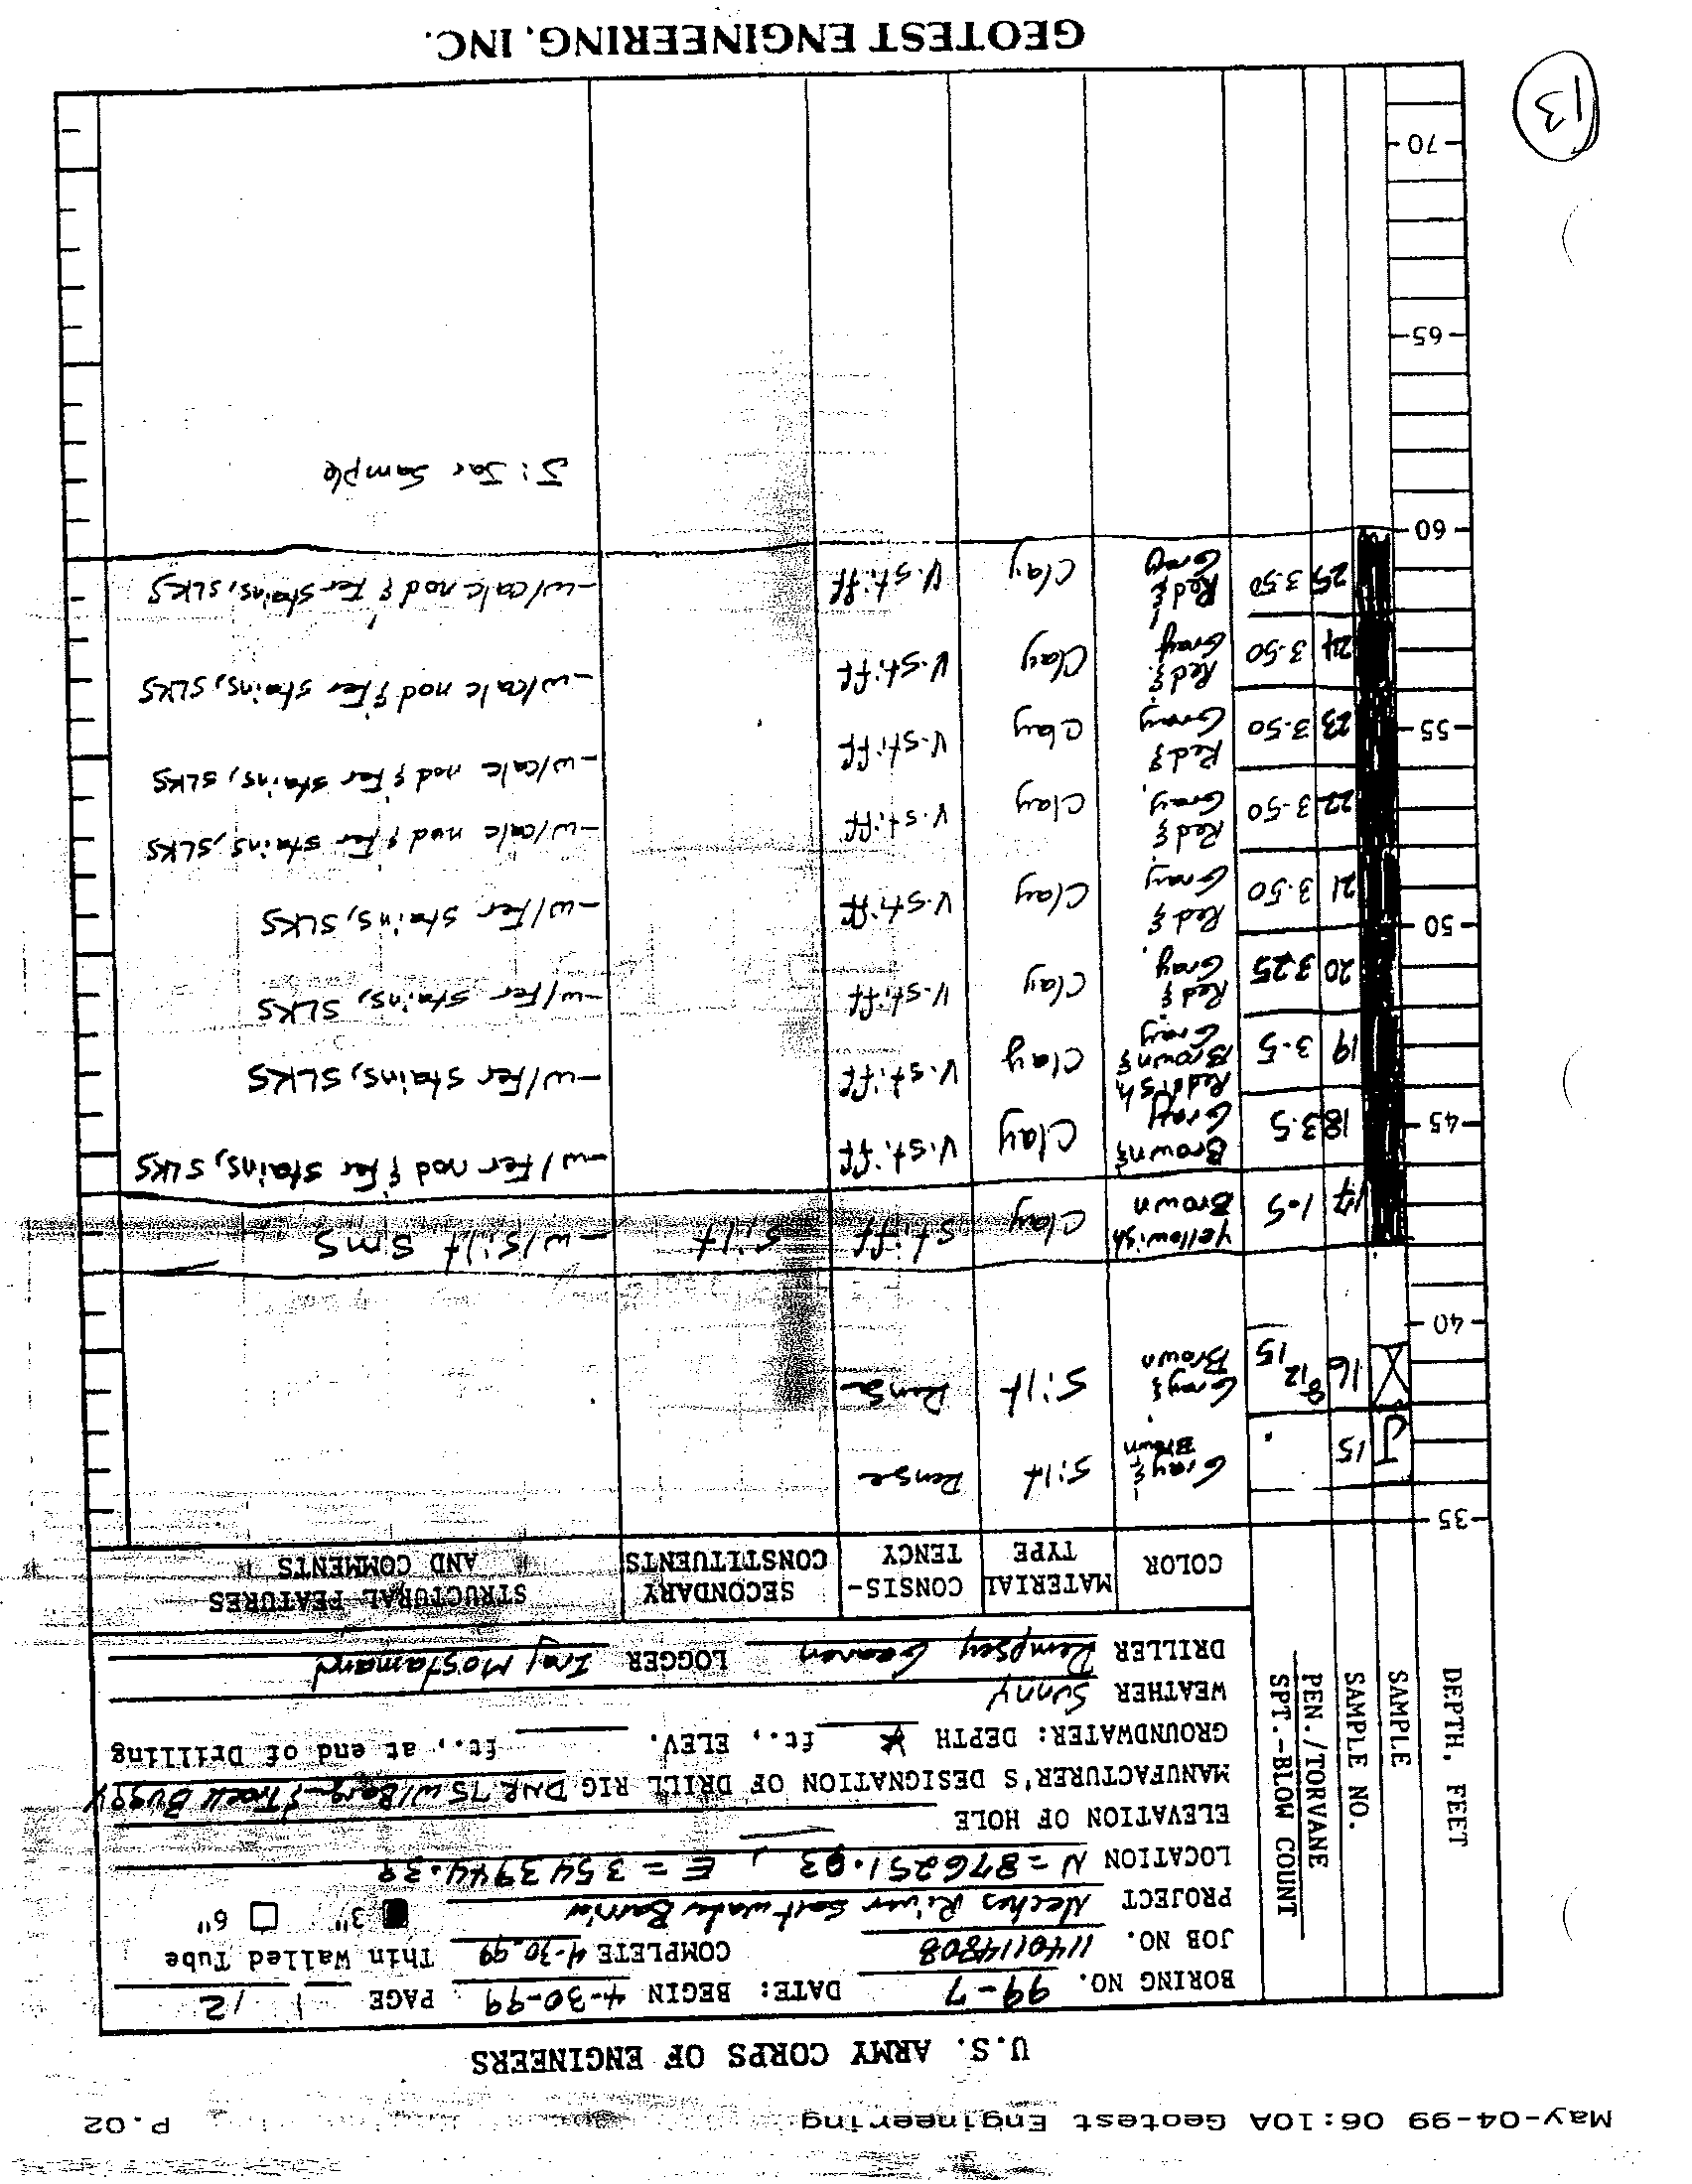 May-04-99 06:10A Geotest Engineering P.02
U.S. ARMY CORPS OF ENGINEERS
BORING NO. 99-7 DATE: BEGIN 4-30-99 PAGE 12
JOB NO. 1140114808 COMPLETE 4-30-99 Thin Walled Tube
PROJECT Neches River Salt water Barrier 3" 6"
LOCATION N=876251.93, E=3543944.39
ELEVATION OF HOLE
MANUFACTURER'S DESIGNATION OF DRILL RIG 75 W/ Track Buggy
GROUNDWATER: DEPTH * ft., ELEV. ft., at end of Drilling
WEATHER Sunny
DRILLER Dempsey LOGGER Iraj Mostamand
DEPTH, FEET
SAMPLE
SAMPLE NO.
PEN./TORVANE
SPT.-BLOW COUNT
COLOR
MATERIAL TYPE
CONSIS-TENCY
SECONDARY CONSTITUENTS
STRUCTURAL FEATURES AND COMMENTS
35
J 15 Gray & Brown Silt Dense
16 8 12 15 Gray & Brown Silt Dense
40
17 1.5 Yellowish Brown Clay Stiff Silt -w/silt sms
18 3.5 Brown & Gray Clay V.stiff -w/fer nod & fer stains, SLKS
45
19 3.5 Reddish Brown & Gray Clay V.stiff -w/fer stains, SLKS
20 3.25 Red & Gray Clay V.stiff -w/fer stains, SLKS
50
21 3.50 Red & Gray Clay V.stiff -w/fer stains, SLKS
22 3.50 Red & Gray Clay V.stiff -w/calc nod & fer stains, SLKS
23 3.50 Red & Gray Clay V.stiff -w/calc nod & fer stains, SLKS
55
24 3.50 Red & Gray Clay V.stiff -w/calc nod & fer stains, SLKS
25 3.50 Red & Gray Clay V.stiff -w/calc nod & fer stains, SLKS
60
J: Jar Sample
65
70
13
GEOTEST ENGINEERING, INC.